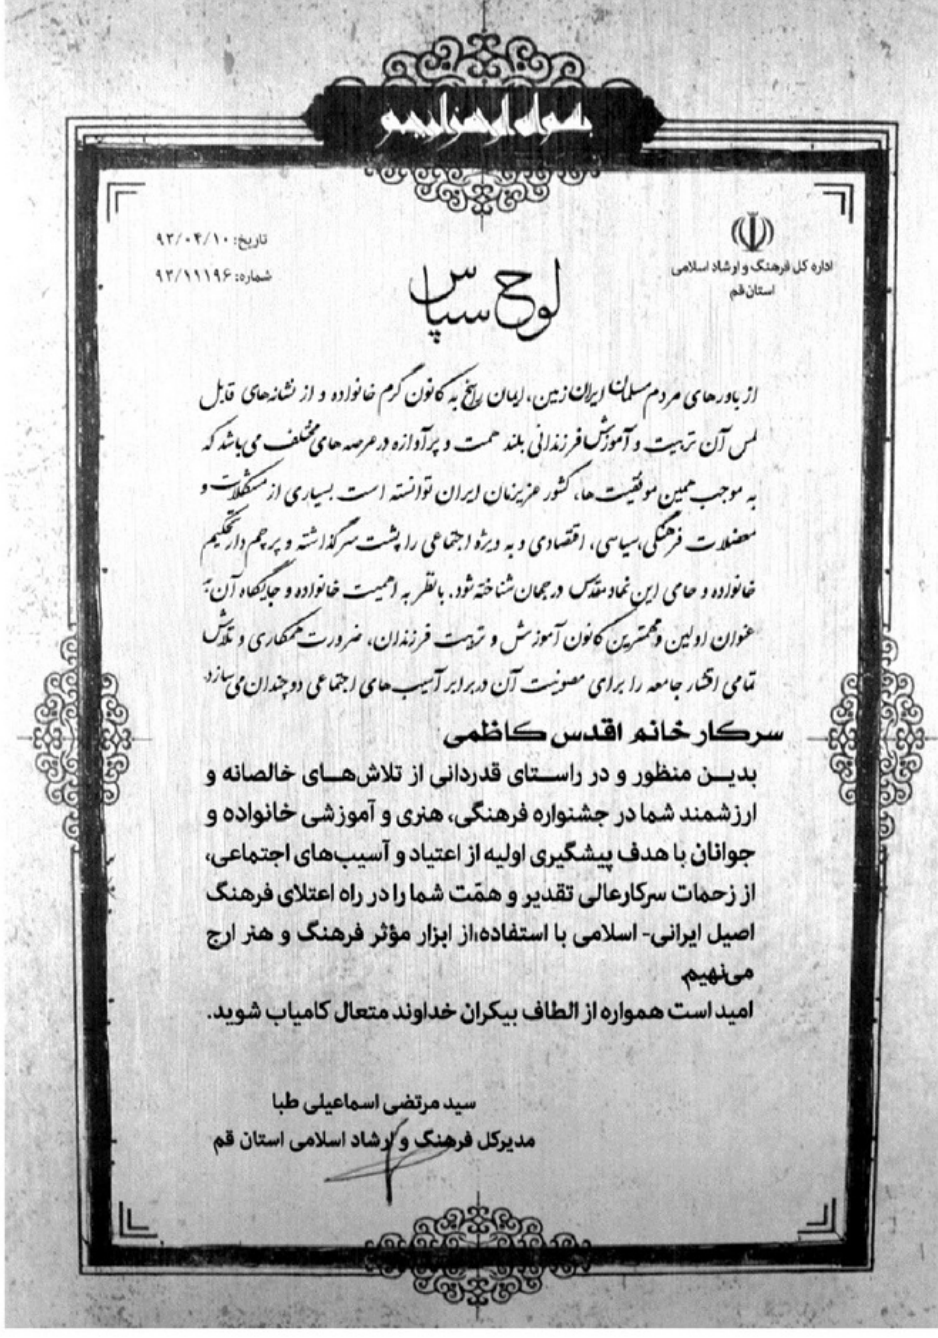 بسم الله الرحمن الرحیم
اداره کل فرهنگ و ارشاد اسلامی
استان قم
تاریخ: ۹۳/۰۴/۱۰
شماره: ۹۳/۱۱۱۹۶
لوح سپاس
از باورهای مردم مسلمان ایران زمین، ایمان راسخ به کانون گرم خانواده و از نشانه‌های قابل
لمس آن تربیت و آموزش فرزندانی بلند همت و پرآوازه در عرصه های مختلف می باشد که
به موجب همین موفقیت ها، کشور عزیزمان ایران توانسته است بسیاری از مشکلات و
معضلات فرهنگی، سیاسی، اقتصادی و به ویژه اجتماعی را پشت سر گذاشته و پرچم دار تحکیم
خانواده و حامی این نهاد مقدس در جهان شناخته شود. با نظر به اهمیت خانواده و جایگاه آن به
عنوان اولین و مهمترین کانون آموزش و تربیت فرزندان، ضرورت همکاری و تلاش
تمامی اقشار جامعه را برای مصونیت آن در برابر آسیب های اجتماعی دو چندان می سازد.
سرکار خانم اقدس کاظمی
بدین منظور و در راستای قدردانی از تلاش‌های خالصانه و
ارزشمند شما در جشنواره فرهنگی، هنری و آموزشی خانواده و
جوانان با هدف پیشگیری اولیه از اعتیاد و آسیب‌های اجتماعی،
از زحمات سرکارعالی تقدیر و همّت شما را در راه اعتلای فرهنگ
اصیل ایرانی- اسلامی با استفاده از ابزار مؤثر فرهنگ و هنر ارج
می‌نهیم
امید است همواره از الطاف بیکران خداوند متعال کامیاب شوید.
سید مرتضی اسماعیلی طبا
مدیرکل فرهنگ و ارشاد اسلامی استان قم